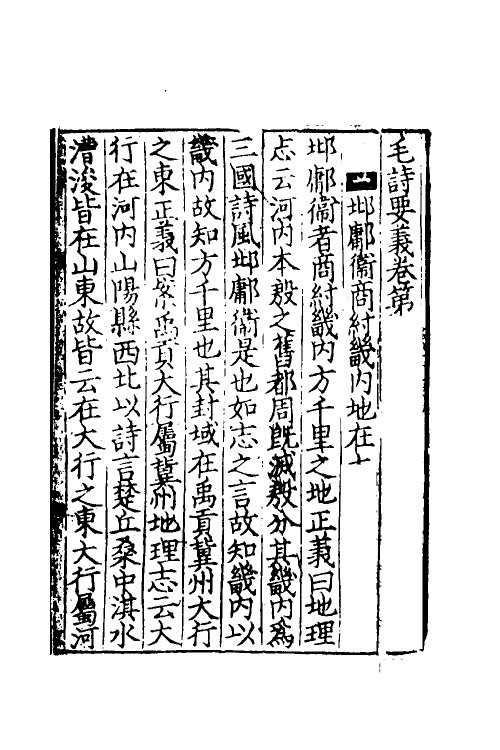 毛詩要義卷第
一邶鄘衞商紂畿内地在
邶鄘衞者商紂畿内方千里之地正義曰地理
志云河内本殷之舊都周既滅殷分其畿内爲
三國詩風邶鄘衞是也如志之言故知畿内以
畿内故知方千里也其封域在禹貢冀州大行
之東正義曰案禹貢大行屬冀州地理志云大
行在河内山陽縣西北以詩言楚丘桑中淇水
漕浚皆在山東故皆云在大行之東大行屬河